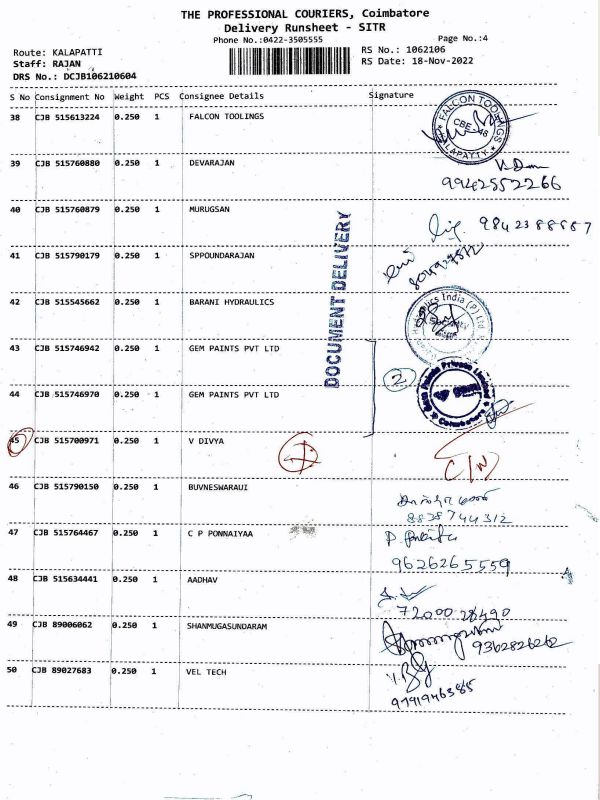 THE PROFESSIONAL COURIERS, Coimbatore
Delivery Runsheet - SITR
Phone No.:0422-3505555 Page No.:4
Route: KALAPATTI RS No.: 1062106
Staff: RAJAN RS Date: 18-Nov-2022
DRS No.: DCJB106210604
S No Consignment No Weight PCS Consignee Details Signature
38 CJB 515613224 0.250 1 FALCON TOOLINGS
FALCON TOOLINGS
CBE. 48
KALAPATTY
39 CJB 515760880 0.250 1 DEVARAJAN
9942552266
40 CJB 515760879 0.250 1 MURUGSAN
41 CJB 515790179 0.250 1 SPPOUNDARAJAN
DOCUMENT DELIVERY
42 CJB 515545662 0.250 1 BARANI HYDRAULICS
India (P) Ltd
43 CJB 515746942 0.250 1 GEM PAINTS PVT LTD
2
44 CJB 515746970 0.250 1 GEM PAINTS PVT LTD
Gem Paints Private Limited
Coimbatore
45 CJB 515700971 0.250 1 V DIVYA
C/N
46 CJB 515790150 0.250 1 BUVNESWARAUI
8828744312
47 CJB 515764467 0.250 1 C P PONNAIYAA
9626265559
48 CJB 515634441 0.250 1 AADHAV
7200028490
49 CJB 89006062 0.250 1 SHANMUGASUNDARAM
9362826262
50 CJB 89027683 0.250 1 VEL TECH
9791946385